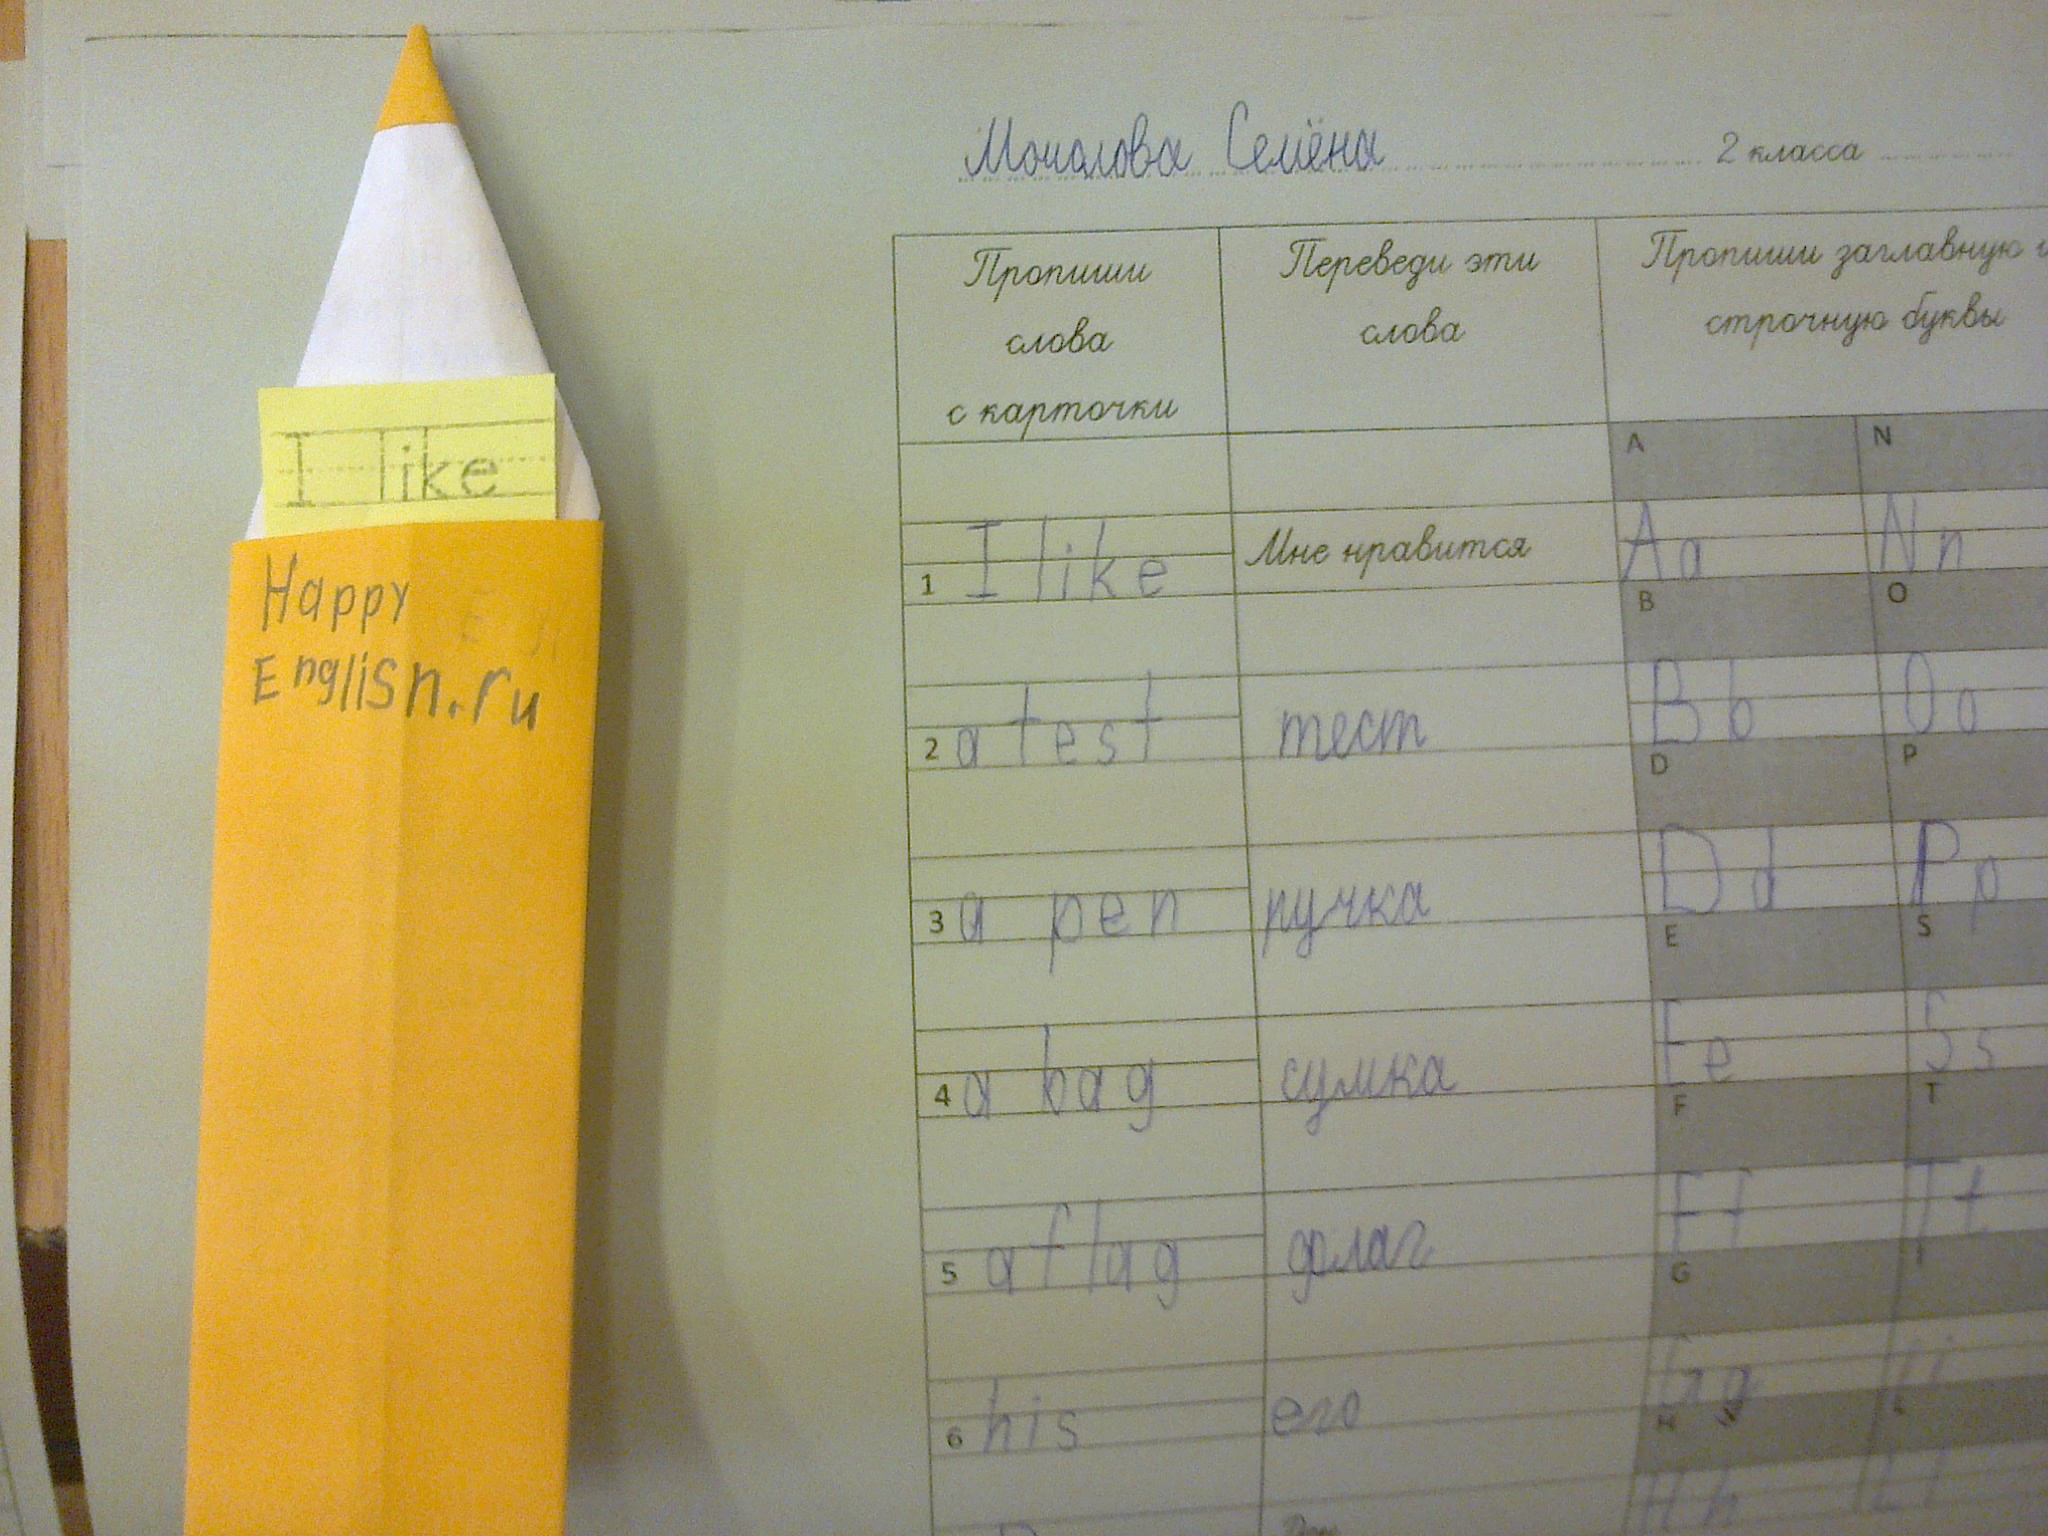 I like
Happy
English.ru
Мочалова Семёна 2 класса
Пропиши
слова
с карточки
Переведи эти
слова
Пропиши заглавную и
строчную буквы
A N
1 I like Мне нравится Aa Nn
B O
2 a test тест Bb Oo
D P
3 a pen ручка Dd Pp
E S
4 a bag сумка Ee Ss
F T
5 a flag флаг Ff Tt
G I
6 his его Gg Ii
H L
Hh Ll